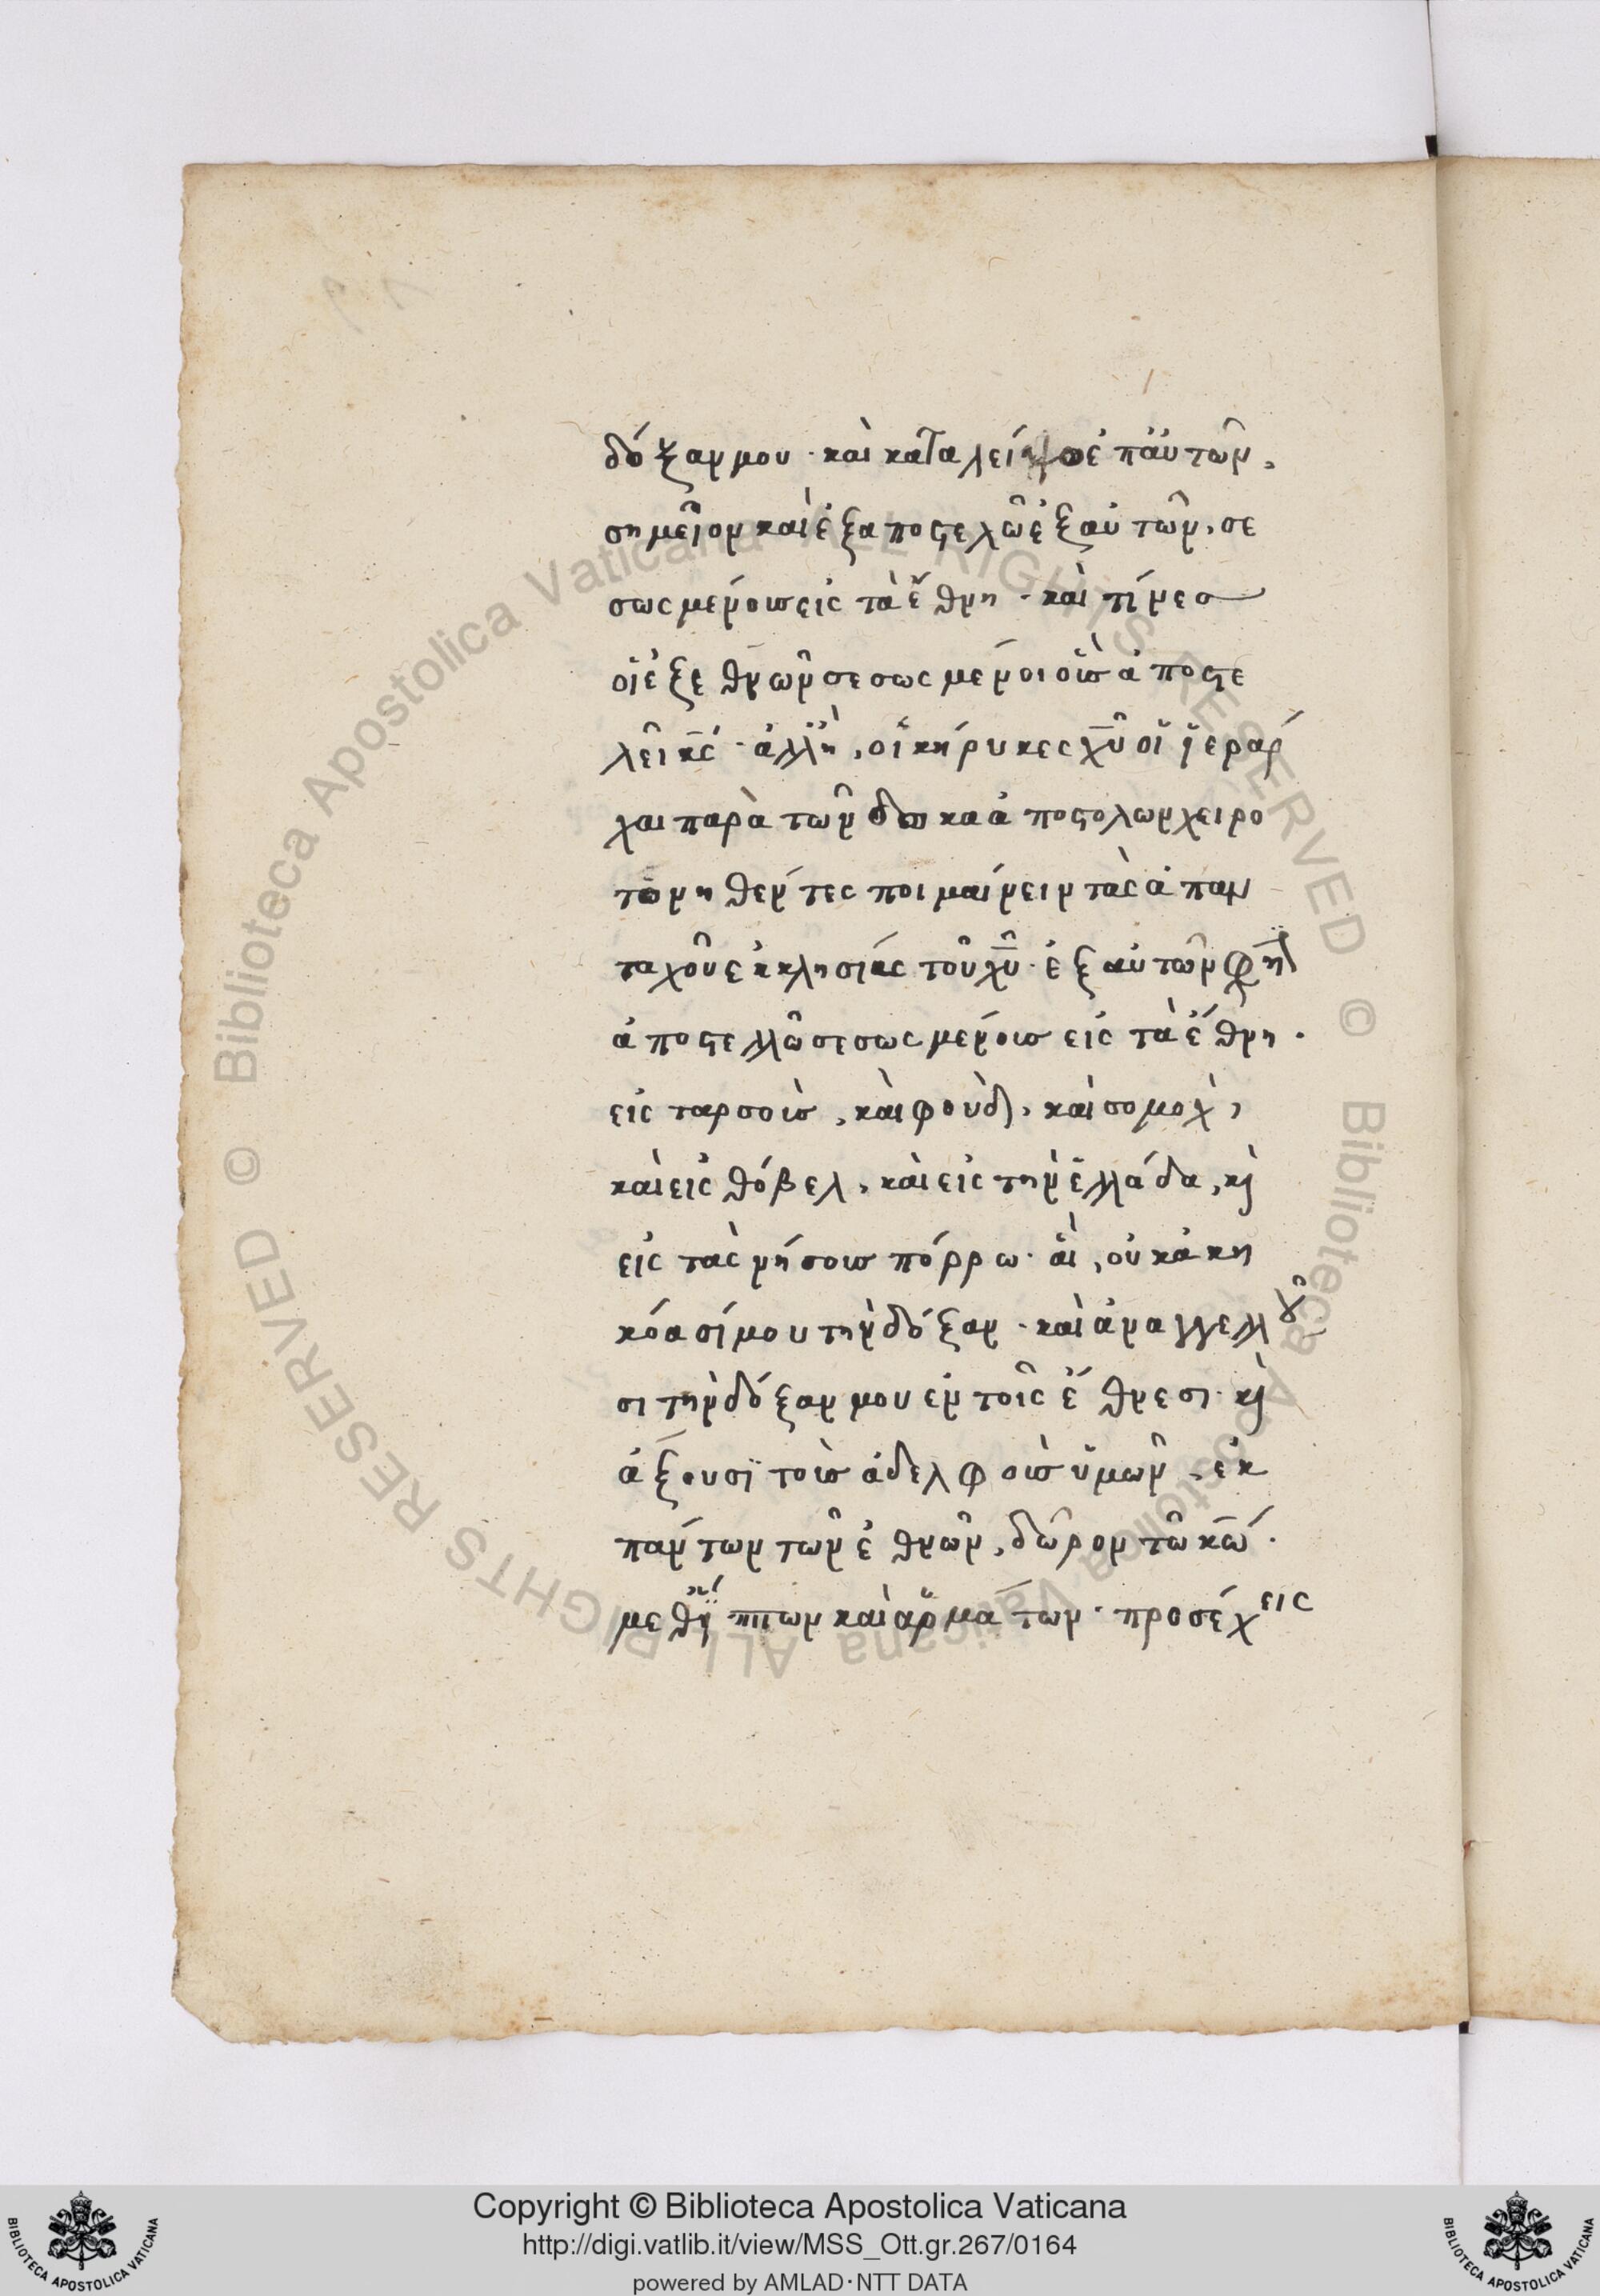 δόξαν μου · καὶ καταλείψω ἐπ' αὐτῶν,
σημεῖον καὶ ἐξαποστελῶ ἐξ αὐτῶν, σε
σωσμένους εἰς τὰ ἔθνη · καὶ τίνες
οἱ ἐξ ἐθνῶν σεσωσμένοι οὓς ἀποστε
λεῖ κς · ἀλλ' ἢ, οἱ κήρυκες χυ οἱ ἱεράρ
χαι παρὰ τῶν δώδεκα ἀποστόλων χειρο
τονηθέντες ποιμαίνειν τὰς ἁπαν
ταχοῦ ἐκκλησίας τοῦ χυ · ἐξ αὐτῶν φη
ἀποστελλῶ σεσωσμένους εἰς τὰ ἔθνη ·
εἰς ταρσοὺς, καὶ φοὺδ, καὶ σομοχ,
καὶ εἰς θόβελ, καὶ εἰς τὴν ἑλλάδα, κὶ
εἰς τὰς νήσους πόρρω · αἳ, οὐκ ἀκη
κόασί μου τὴν δόξαν · καὶ ἀναγγελλοῦ
σι τὴν δόξαν μου ἐν τοῖς ἔθνεσι · κὶ
ἄξουσι τοὺς ἀδελφοὺς ὑμῶν, ἐκ
πάντων τῶν ἐθνῶν, δῶρον τῶ κω ·
μεθ' ἵππων καὶ ἁρμάτων · προσέχεις
Copyright © Biblioteca Apostolica Vaticana
http://digi.vatlib.it/view/MSS_Ott.gr.267/0164
powered by AMLAD·NTT DATA
© Biblioteca Apostolica Vaticana ALL RIGHTS RESERVED
© Biblioteca Apostolica Vaticana ALL RIGHTS RESERVED
BIBLIOTECA APOSTOLICA VATICANA
BIBLIOTECA APOSTOLICA VATICANA